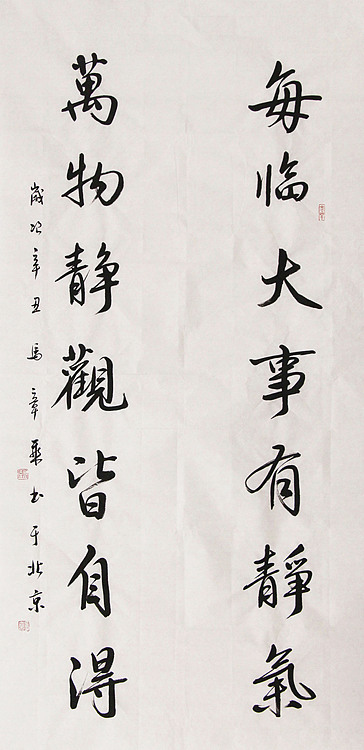 每临大事有靜氣
萬物静觀皆自得
歲次辛丑馬章乘书于北京